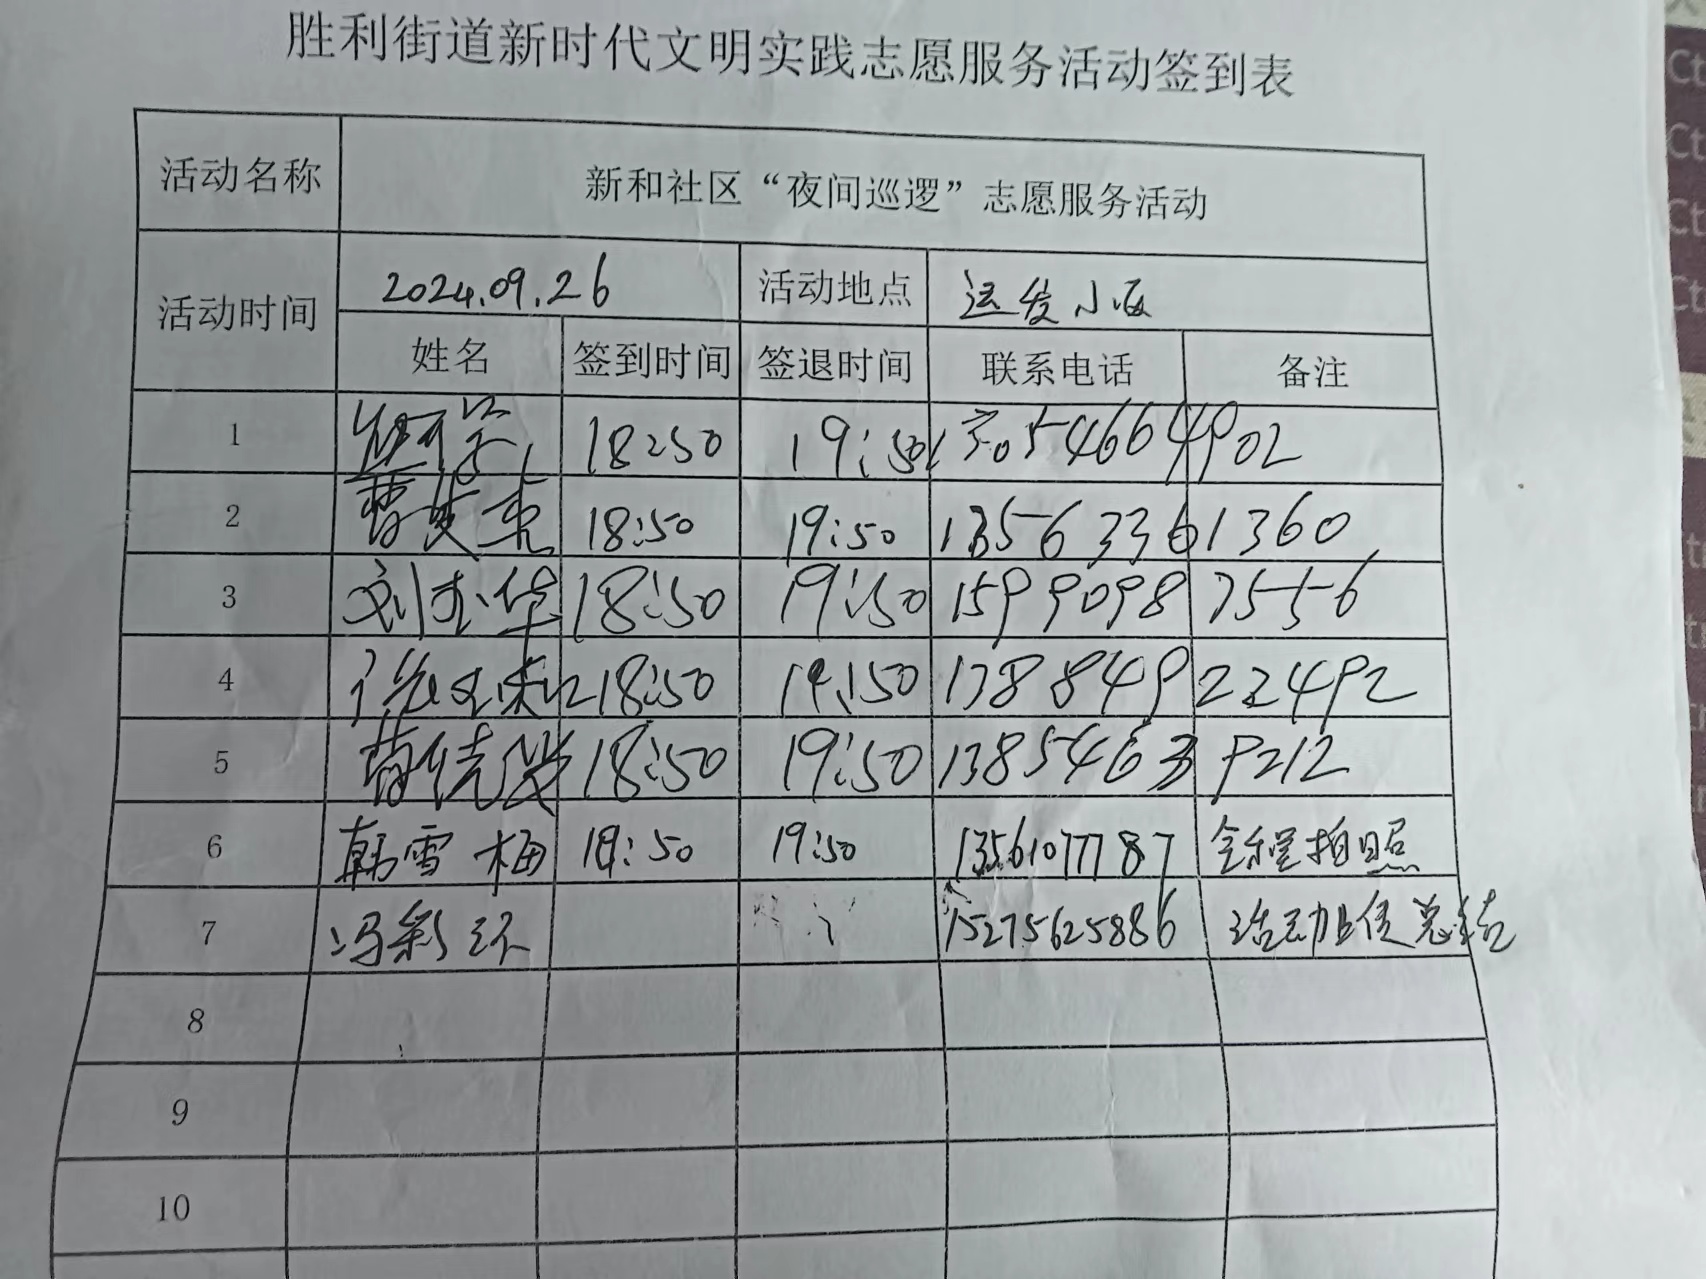 胜利街道新时代文明实践志愿服务活动签到表
活动名称 新和社区“夜间巡逻”志愿服务活动
活动时间 2024.09.26 活动地点 运发小区
姓名 签到时间 签退时间 联系电话 备注
1 18:50 19:50 13054664902
2 18:50 19:50 13563361360
3 18:50 19:50 15990987556
4 18:50 19:50 13884922492
5 18:50 19:50 13854639212
6 韩雪梅 18:50 19:50 13561077787 全程拍照
7 冯彩环 15275625886 活动上传总结
8
9
10